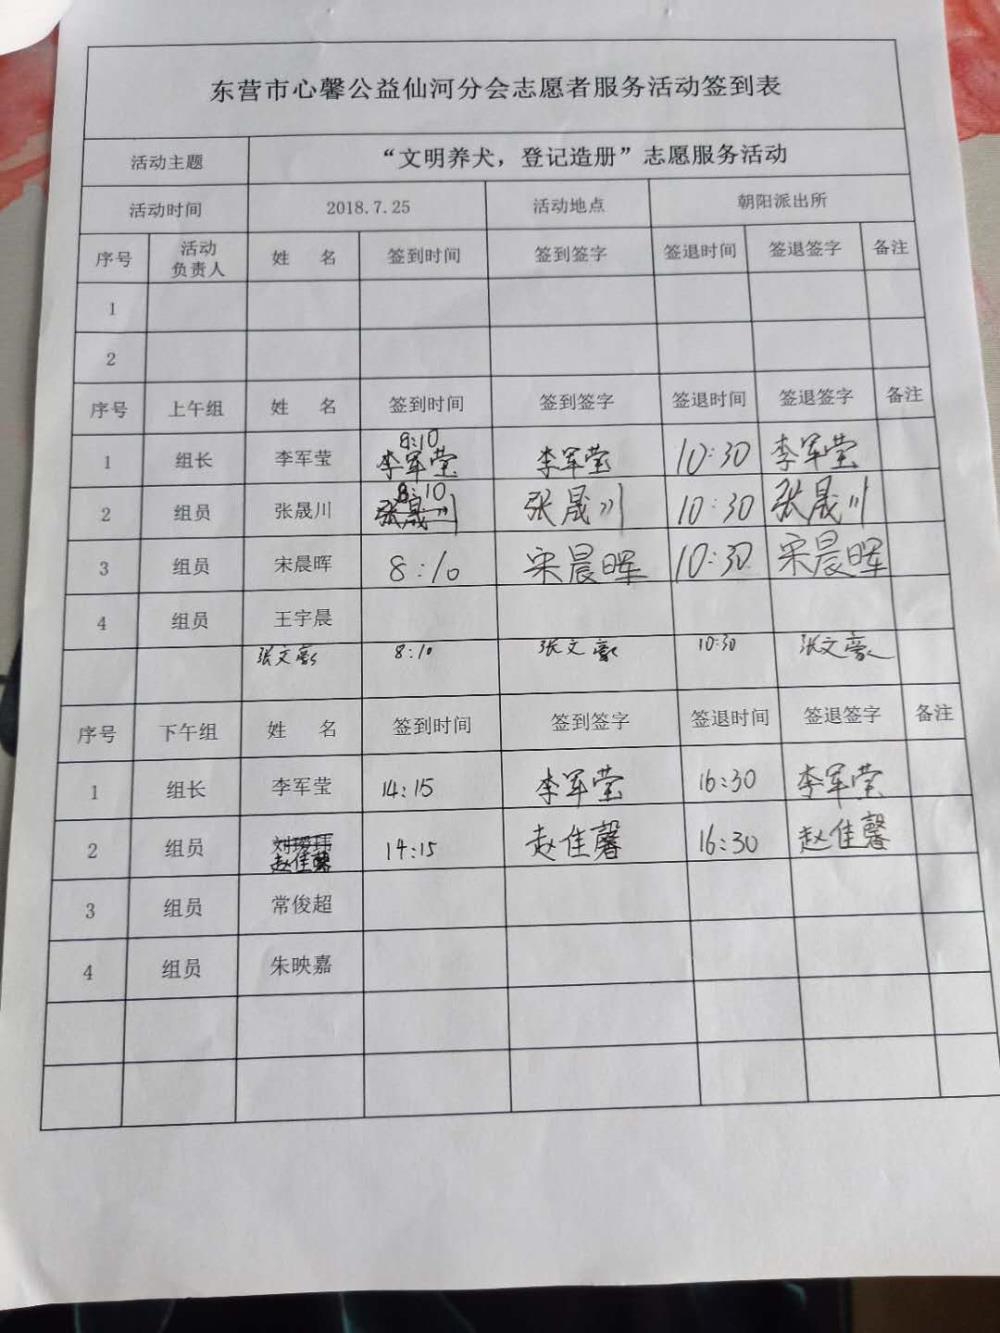 东营市心馨公益仙河分会志愿者服务活动签到表
活动主题 “文明养犬，登记造册”志愿服务活动
活动时间 2018.7.25 活动地点 朝阳派出所
序号 活动负责人 姓 名 签到时间 签到签字 签退时间 签退签字 备注
1
2
序号 上午组 姓 名 签到时间 签到签字 签退时间 签退签字 备注
1 组长 李军莹 8:10 李军莹 李军莹 10:30 李军莹
2 组员 张晟川 8:10 张晟川 张晟川 10:30 张晟川
3 组员 宋晨晖 8:10 宋晨晖 10:30 宋晨晖
4 组员 王宇晨
张文豪 8:10 张文豪 10:30 张文豪
序号 下午组 姓 名 签到时间 签到签字 签退时间 签退签字 备注
1 组长 李军莹 14:15 李军莹 16:30 李军莹
2 组员 赵佳馨 14:15 赵佳馨 16:30 赵佳馨
3 组员 常俊超
4 组员 朱映嘉